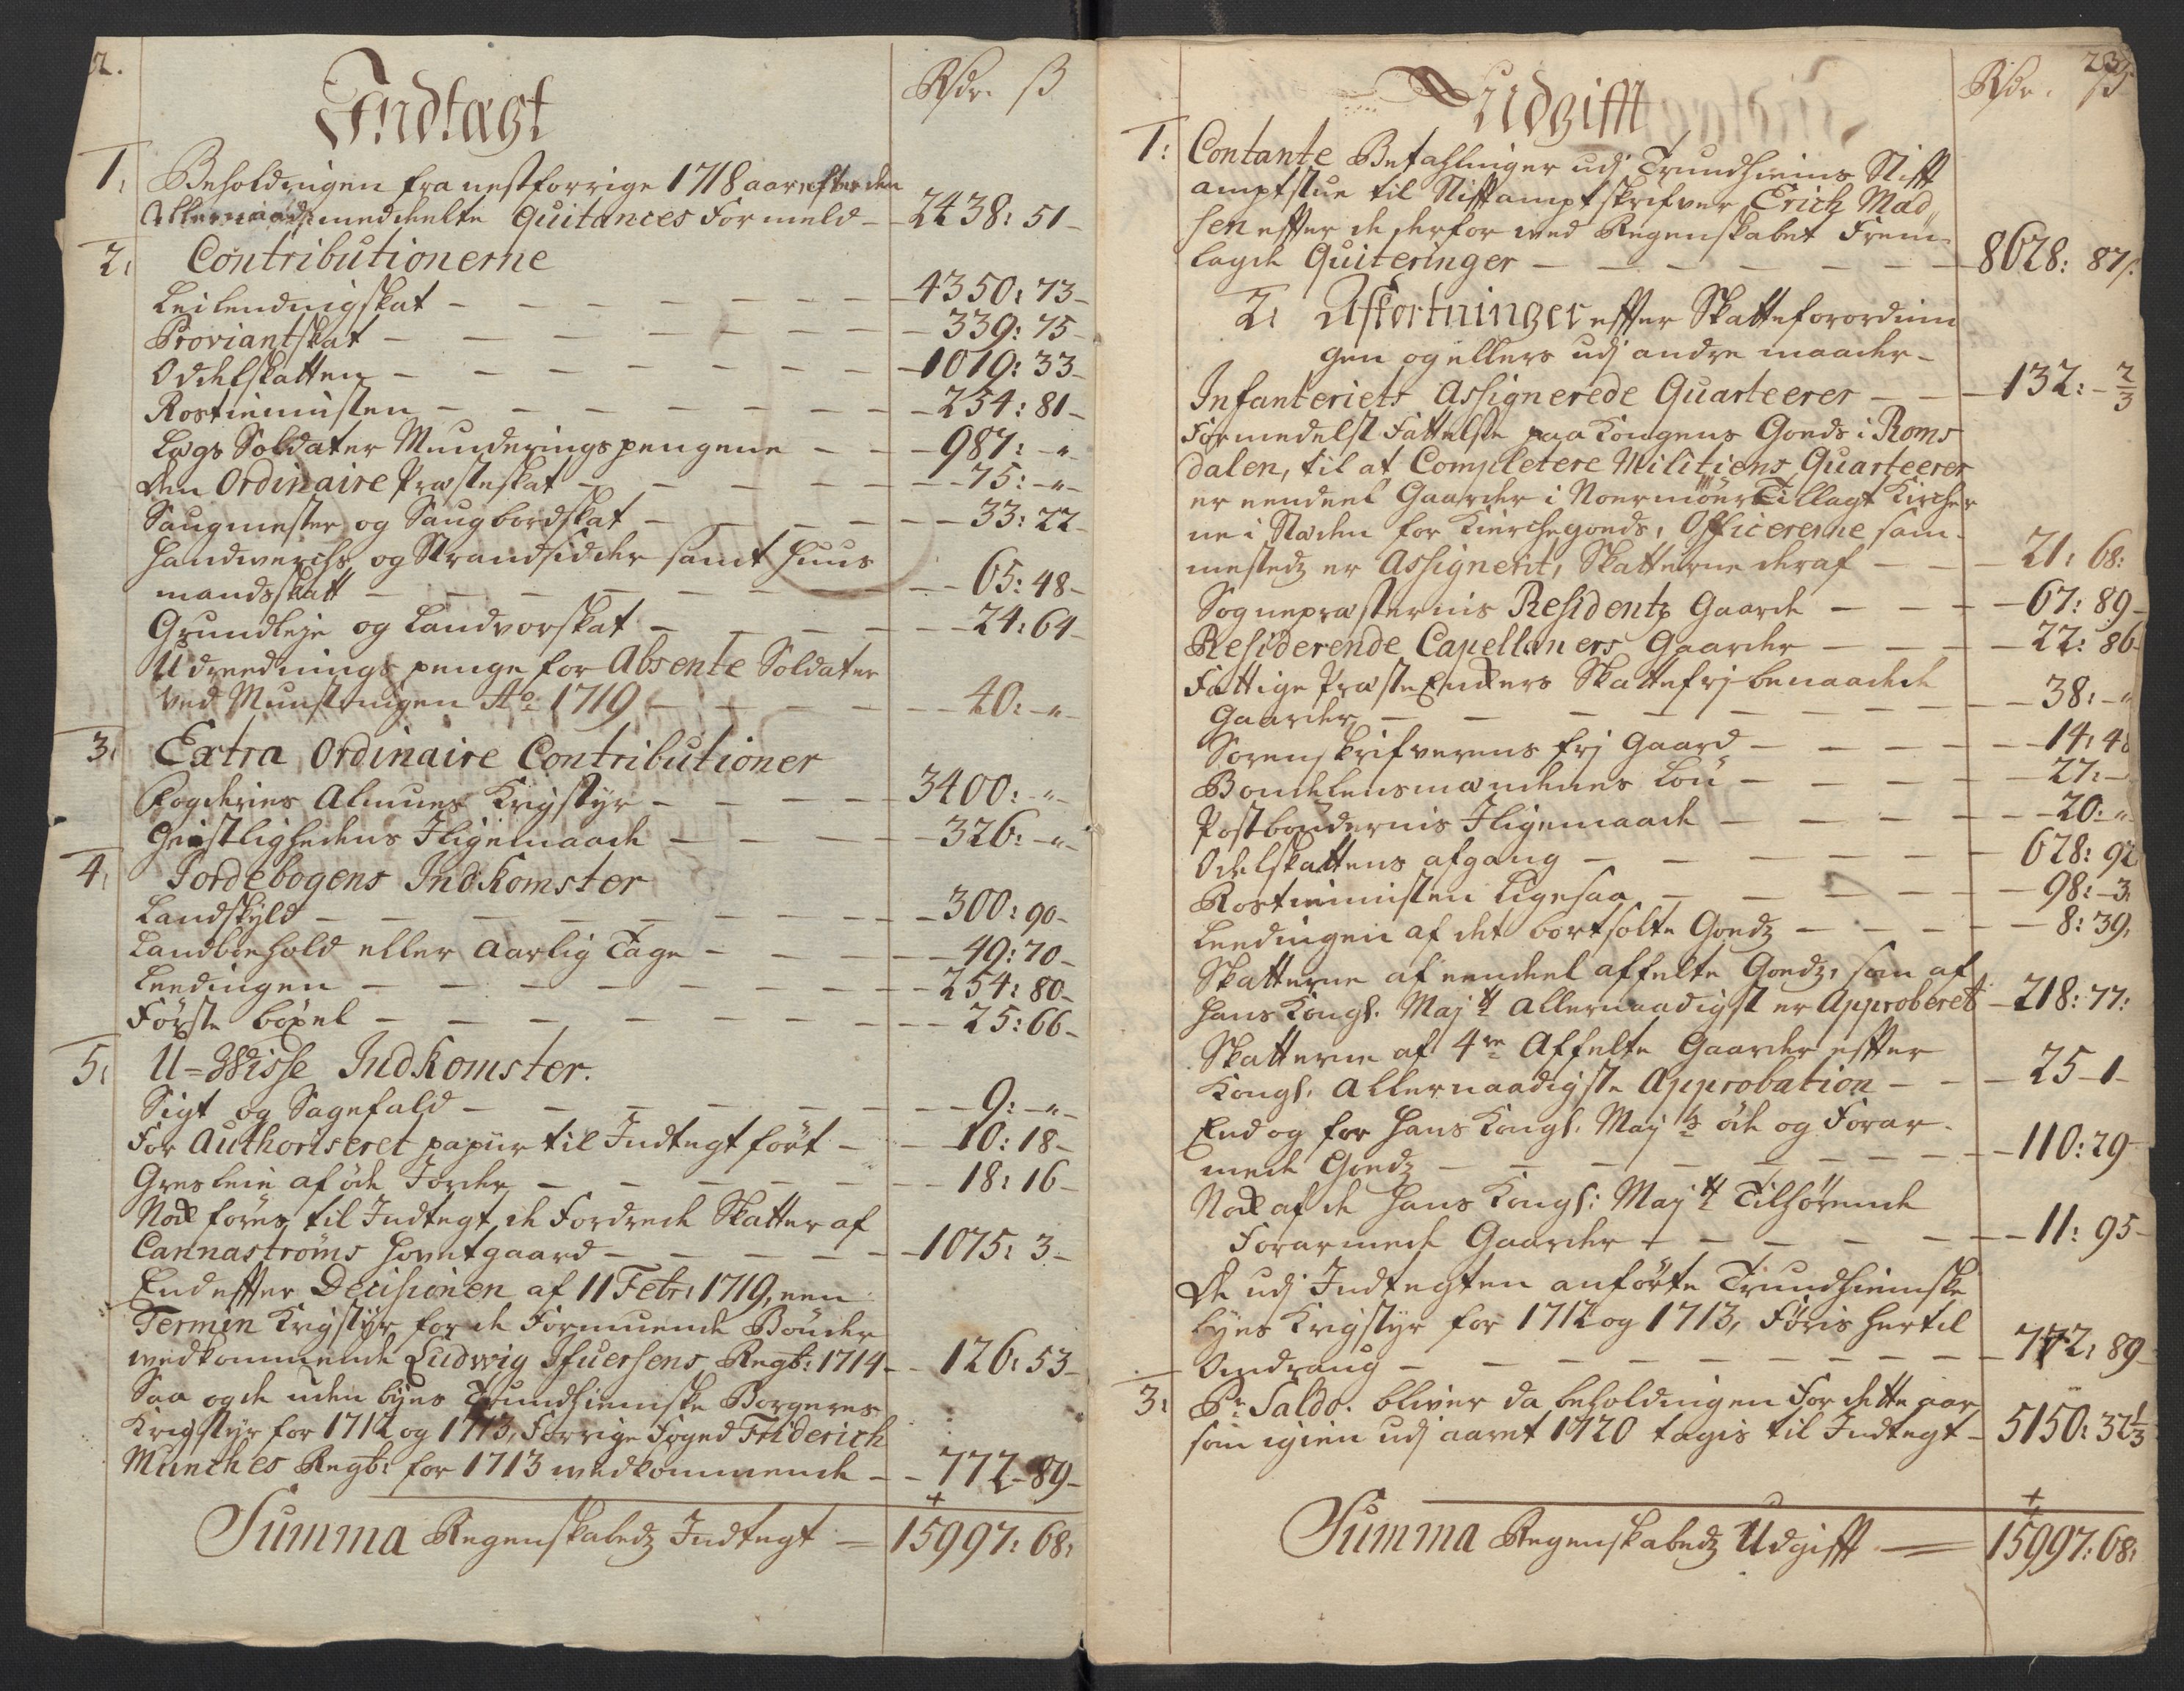 2.
Indtægt
Rdr. ß
1. Beholdningen fra nestforrige 1718 aar, efter den
Allernaad: meddeelte Quitances Formeld - 2438: 51-
2. Contributionerne
Leilendingskat - 4350: 73-
Proviantskat - 339: 75-
Oddelskatten - 1019: 33-
Rostienisten - 254: 81-
Lægs Soldater Munderingspengene - 987: -"-
Den Ordinaire Præsteskat - 75: -"-
Saugmester og Saugbordskat - 33: 22-
Handwerchs og Strandsidder samt Huus
mandsskatt - 65: 48-
Grundleje og Landvorskat - 24: 64-
Udreednings penge for Absente Soldater
ved Mynstringen Ao 1719 - 40: -"-
3. Extra Ordinaire Contributioner
Fogderies Almues Krigstyr - 3400: -"-
Geistlighedens Iligemaade - 326: -"-
4. Jordebogens Indkomster
Landskyld - 300: 90-
Landbiehold eller Aarlig Tage - 49: 70-
Leedingen - 254: 80-
Förste böxel - 25: 66-
5. U-Wisse Indkomster.
Sigt og Sagefald - 9: -"-
For Authoriseret papiir til Indtegt fört - 10: 18-
Gresleie af öde Jorder - 18: 16-
Nok föres til Indtegt de Fordrede Skatter af
Cannaströms Hovetgaard - 1075: 3-
End effter Decisionen af 11 Febr: 1719, een
Termin Krigstyr for de Formuende Bönder
wedkommende Ludwig Ifuersens Regb: 1714 - 126: 53-
Saa og de uden byes Trundhiemske Borgeres
Krigstyr for 1712 og 1713, Forrige Foged Friderich
Munches Regb: for 1713 wedkommende - 772 - 89-
Summa Regenskabedz Indtegt = 15997: 68.
23
Udgifft
Rdr. ß
1: Contante Betahlinger udj Trundhiems Stifft
amptstue til Stifftamptskrifver Erich Mad,,
sen effter de derfor wed Regenskabet Frem-
lagde Quiteringer - 8628: 87.
2. Afkortninger effter Skatteforordnin
gen og ellers udj andre maader-
Infanteriets Assignerede Quarteerer - 132: - 2/3
Formedelst Fattelse paa Kongens Goeds i Roms
dalen, til at Completere Militiens Quarteerer
er eendeel Gaarder i Noermöer Tillagt Kircher
ne i Stæden for Kierchegoeds, Officererne sam-
mestedz er Assignerit, Skatterne deraf - 21: 68:
Sognepræsternis Residentz Gaarde - 67: 89-
Residerende Capellaners Gaarder - 22: 86-
Fattige Præste Enkers Skattefrj benaadede
Gaarder - 38: -"
Sorenskrifverens frj Gaard - 14: 48
Bondelensmændenes Lön - 27: -
Postbøndernis Iligemaade - 20: -"
Odelskattens afgang - 628: 92
Rostienisten Ligesaa - 98: -3.
Leedingen af det bortsolte Goedz - 8: 39.
Skatterne af eendeel affelte Goedz, som af
Hans Kongl. Majtt Allernaadigst er Approberet - 218: 77:
Skatterne af 4re Affelte Gaarder effter
Kongl. Allernaadigste Approbation - 25 - 1-
End og for Hans Kongl. Mayts öde og Forar-
mede Goedz - 110: 29-
Nok af de Hans Kongl: Majtt Tilhörende
Forarmede Gaarder - 11: 95-
De udj Indtegten anförte Trundhiemske
byes Krigstyr for 1712 og 1713, Föris hertil
Omdraug - 772: 89-
3. Pr Saldo. bliver da beholdningen for dette aar
som igien udj aaret 1720 tagis til Indtegt - 5150: 32 1/3
Summa Regenskabedz Udgifft = 15997: 68.